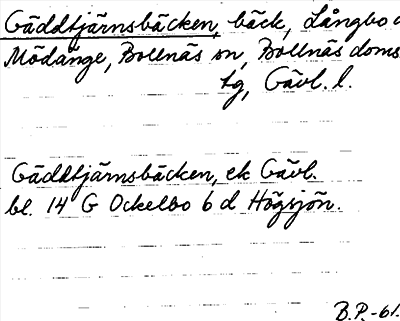 Gäddtjärnsbäcken, bäck, Långbo o
Mödänge, Bollnäs sn, Bollnäs doms
lg, Gävl. l.
Gäddtjärnsbäcken, ek Gävl.
bl. 14 G Ockelbo 6 d Högsjön.
B.P.-61.